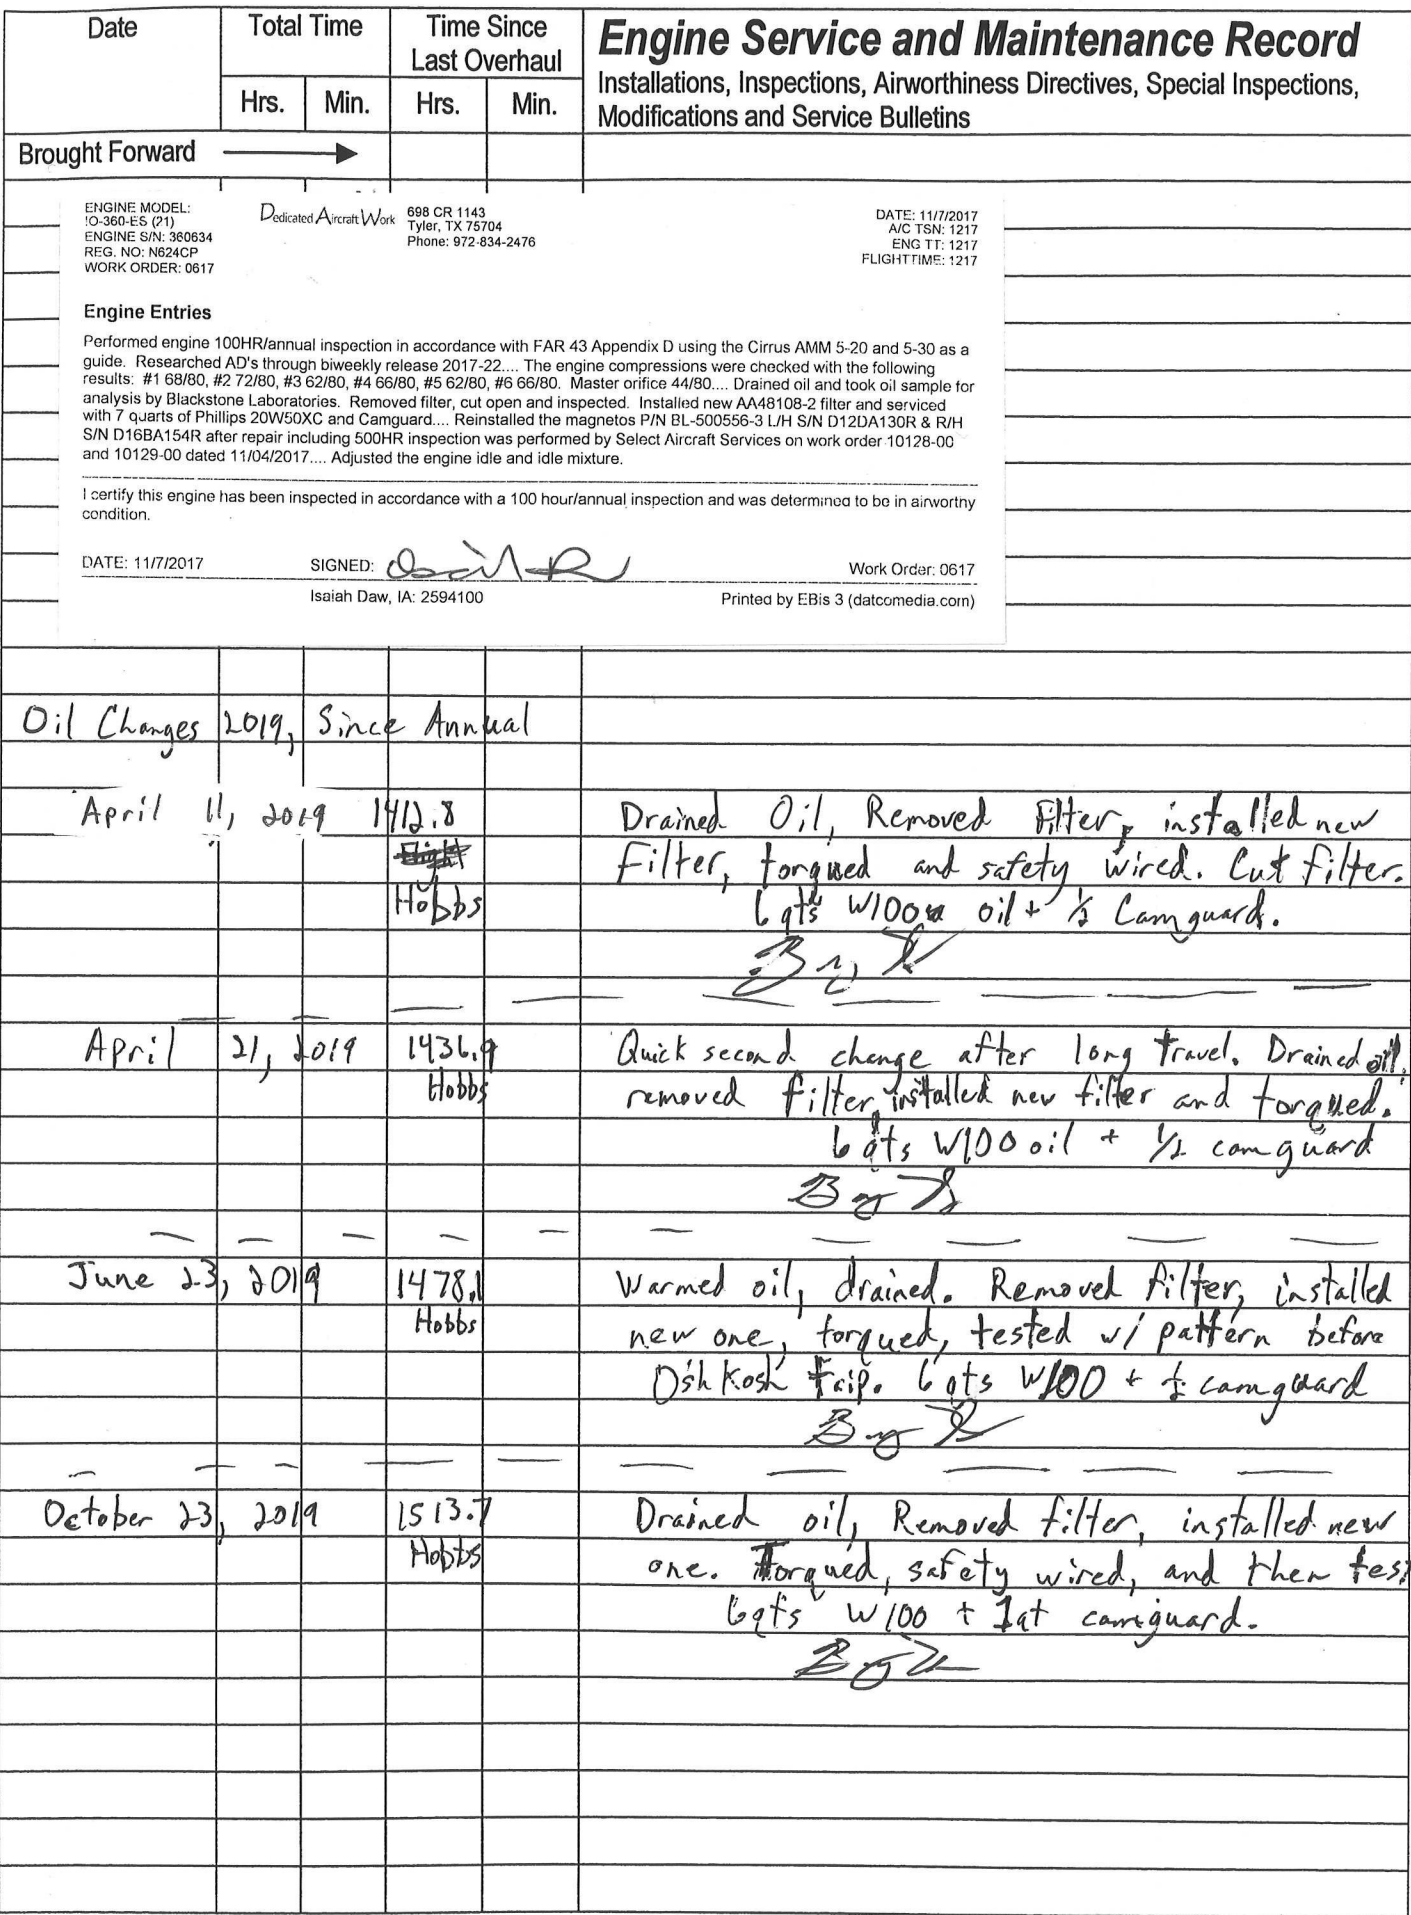 Date
Total Time
Time Since
Last Overhaul
Hrs. Min. Hrs. Min.
Engine Service and Maintenance Record
Installations, Inspections, Airworthiness Directives, Special Inspections,
Modifications and Service Bulletins
Brought Forward
ENGINE MODEL:
IO-360-ES (21)
ENGINE S/N: 360634
REG. NO: N624CP
WORK ORDER: 0617
Dedicated Aircraft Work
698 CR 1143
Tyler, TX 75704
Phone: 972-834-2476
DATE: 11/7/2017
A/C TSN: 1217
ENG TT: 1217
FLIGHTTIME: 1217
Engine Entries
Performed engine 100HR/annual inspection in accordance with FAR 43 Appendix D using the Cirrus AMM 5-20 and 5-30 as a
guide. Researched AD's through biweekly release 2017-22.... The engine compressions were checked with the following
results: #1 68/80, #2 72/80, #3 62/80, #4 66/80, #5 62/80, #6 66/80. Master orifice 44/80.... Drained oil and took oil sample for
analysis by Blackstone Laboratories. Removed filter, cut open and inspected. Installed new AA48108-2 filter and serviced
with 7 quarts of Phillips 20W50XC and Camguard.... Reinstalled the magnetos P/N BL-500556-3 L/H S/N D12DA130R & R/H
S/N D16BA154R after repair including 500HR inspection was performed by Select Aircraft Services on work order 10128-00
and 10129-00 dated 11/04/2017.... Adjusted the engine idle and idle mixture.
I certify this engine has been inspected in accordance with a 100 hour/annual inspection and was determined to be in airworthy
condition.
DATE: 11/7/2017 SIGNED: Work Order: 0617
Isaiah Daw, IA: 2594100 Printed by EBis 3 (datcomedia.com)
Oil Changes 2019, Since Annual
April 11, 2019 1412.8 Drained Oil, Removed Filter, installed new
Flight Filter, torqued and safety wired. Cut filter.
Hobbs 6 qts W100 oil + 1/2 Camguard.
April 21, 2019 1436.9 Quick second change after long travel. Drained oil,
Hobbs removed filter, installed new filter and torqued.
6 qts W100 oil + 1/2 camguard
June 23, 2019 1478.1 Warmed oil, drained. Removed filter, installed
Hobbs new one, torqued, tested w/ pattern before
OshKosh trip. 6 qts W100 + 1/2 camguard
October 23, 2019 1513.7 Drained oil, Removed filter, installed new
Hobbs one. Torqued, safety wired, and then test
6qts W100 + 1qt camguard.